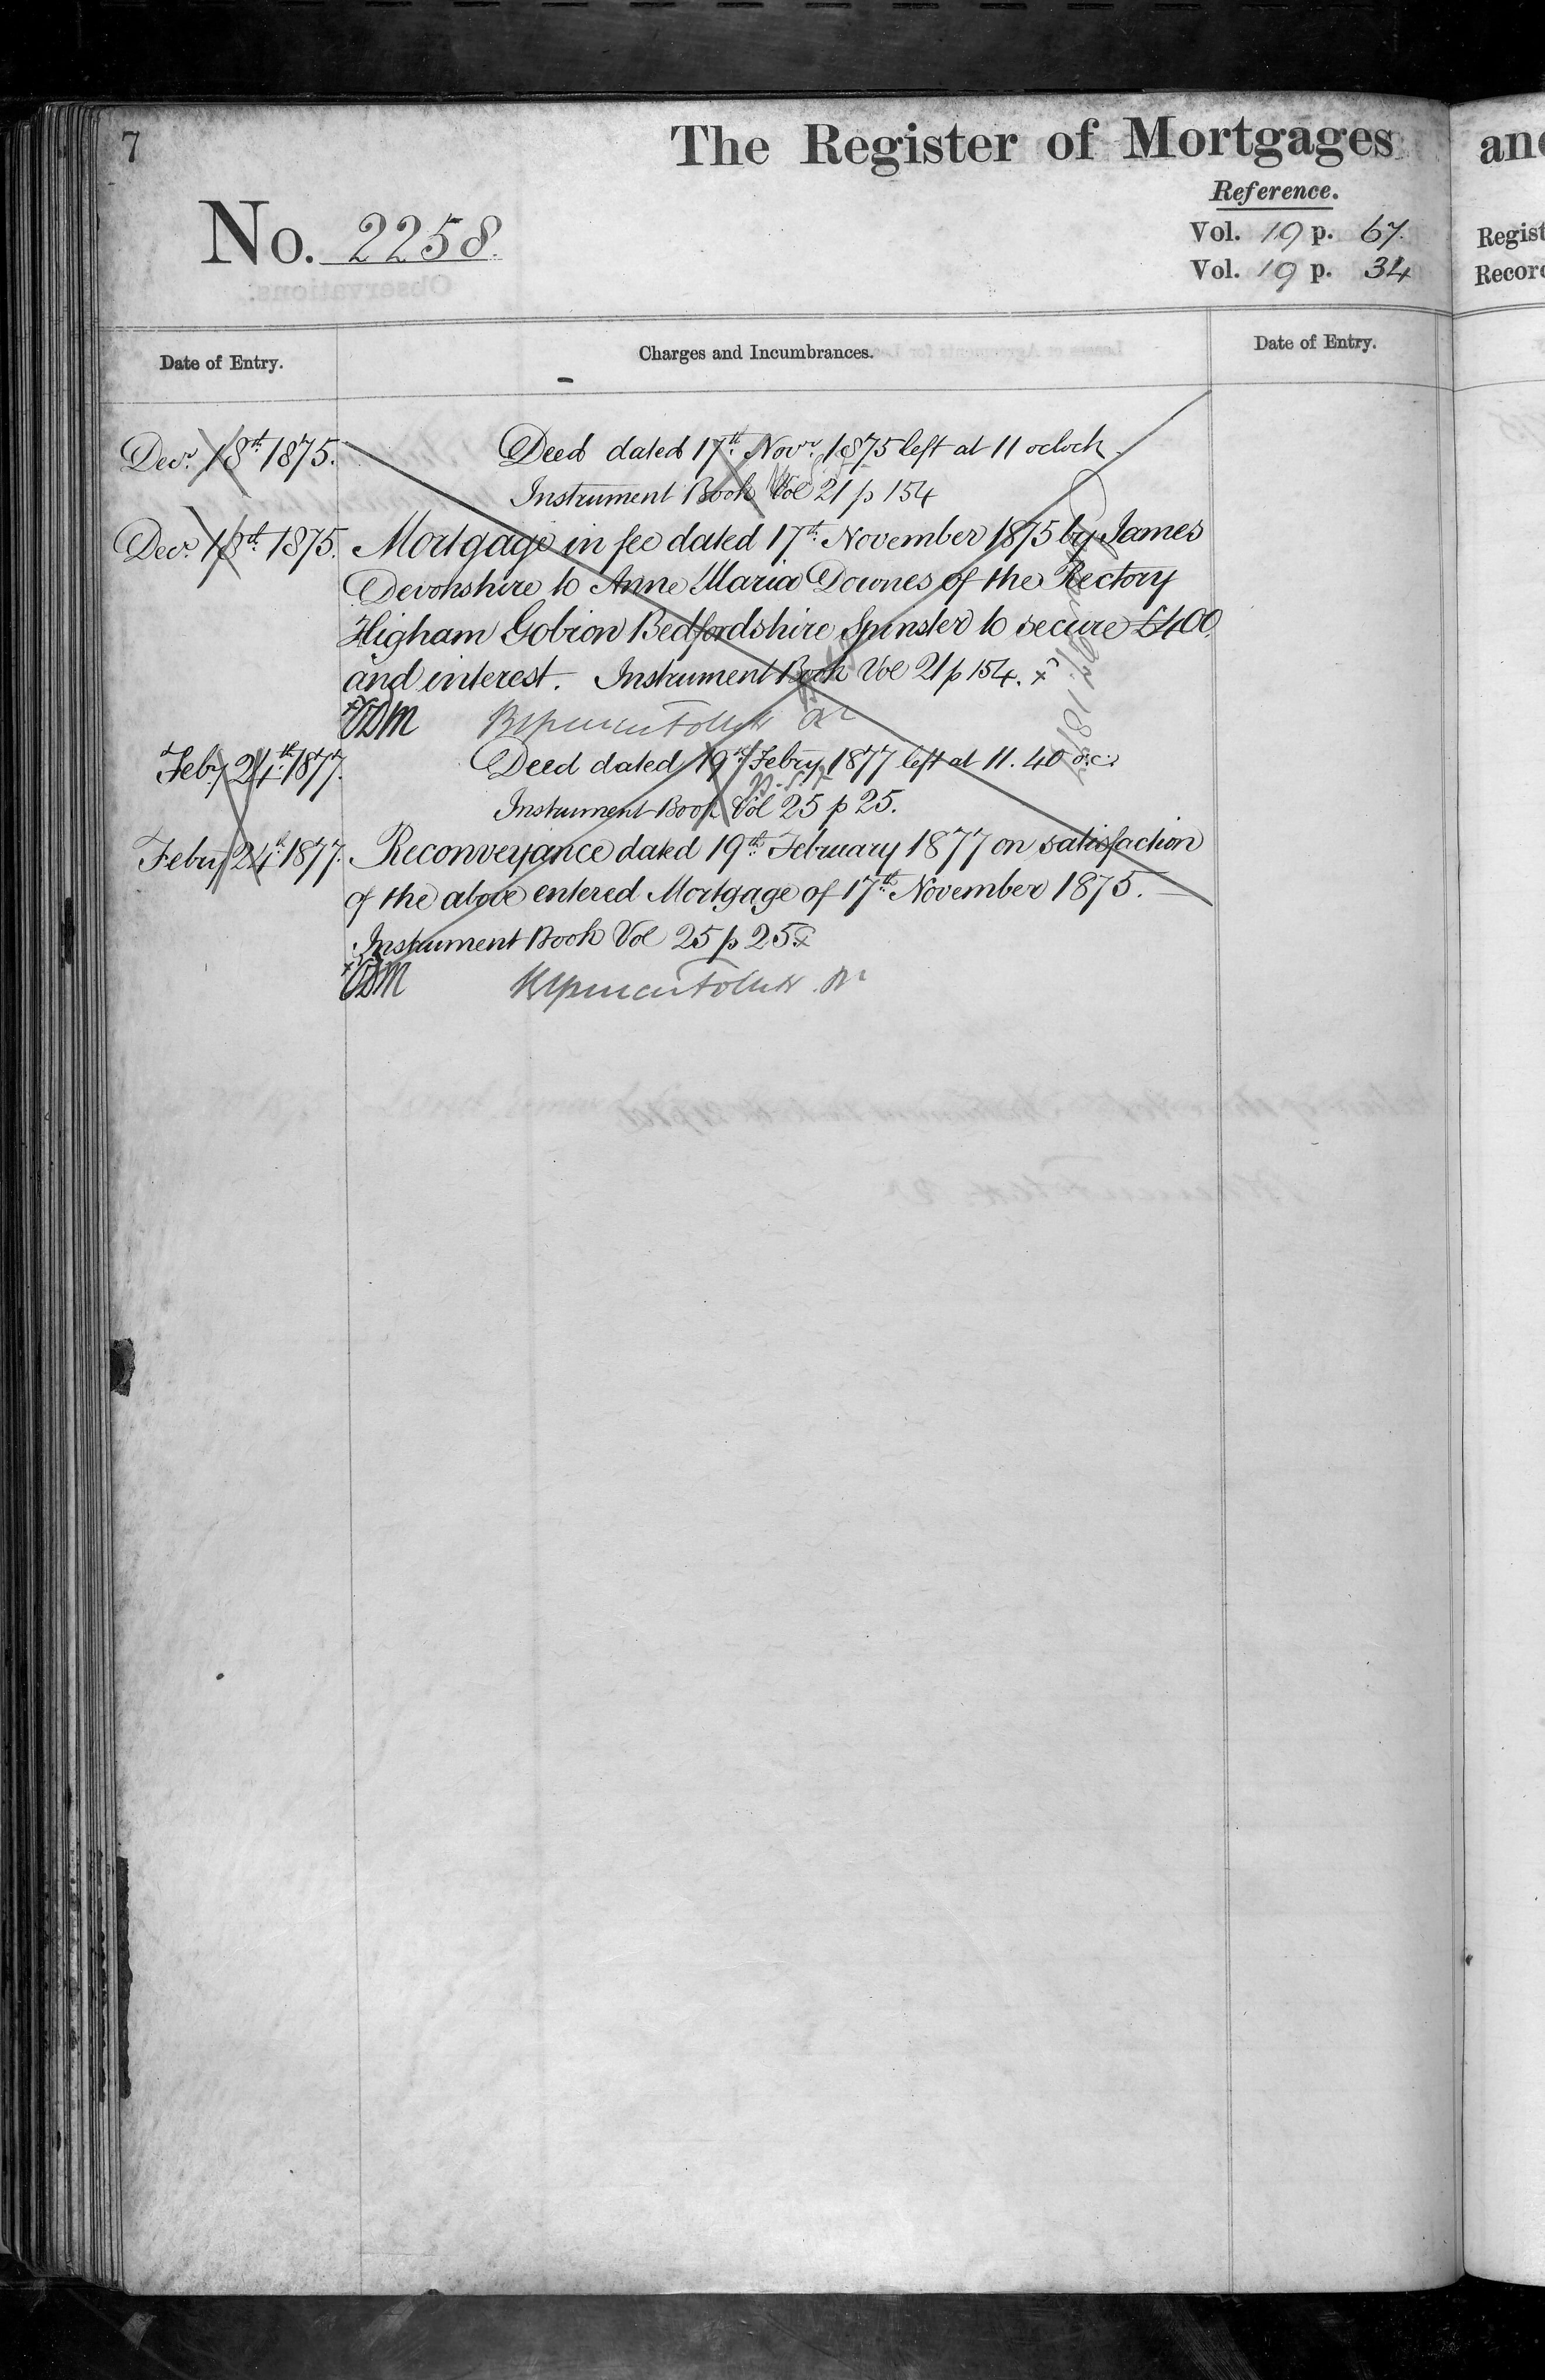 7
The Register of Mortgages
and
Reference.
No. 2258.
Vol. 19 p. 67.
Vol. 19 p. 34
Regist
Record
Date of Entry.
Charges and Incumbrances.
Date of Entry.
Decr. 18th 1875.
Deed dated 17th. Novr. 1875 left at 11 oclock.
Instrument Book Vol 21 p 154
Decr. 18th. 1875.
Mortgage in fee dated 17th. November 1875 by James
Devonshire to Anne Maria Downes of the Rectory
Higham Gobion Bedfordshire Spinster to secure £400.
and interest. Instrument Book Vol 21 p 154. x
x VDM
Feby 24th. 1877.
Deed dated 19th Febry 1877 left at 11. 40 o.c.
Instrument Book Vol 25 p 25.
Febry 24th 1877.
Reconveyance dated 19th. February 1877 on satisfaction
of the above entered Mortgage of 17th. November 1875.
Instrument Book Vol 25 p 25. x
x VDM